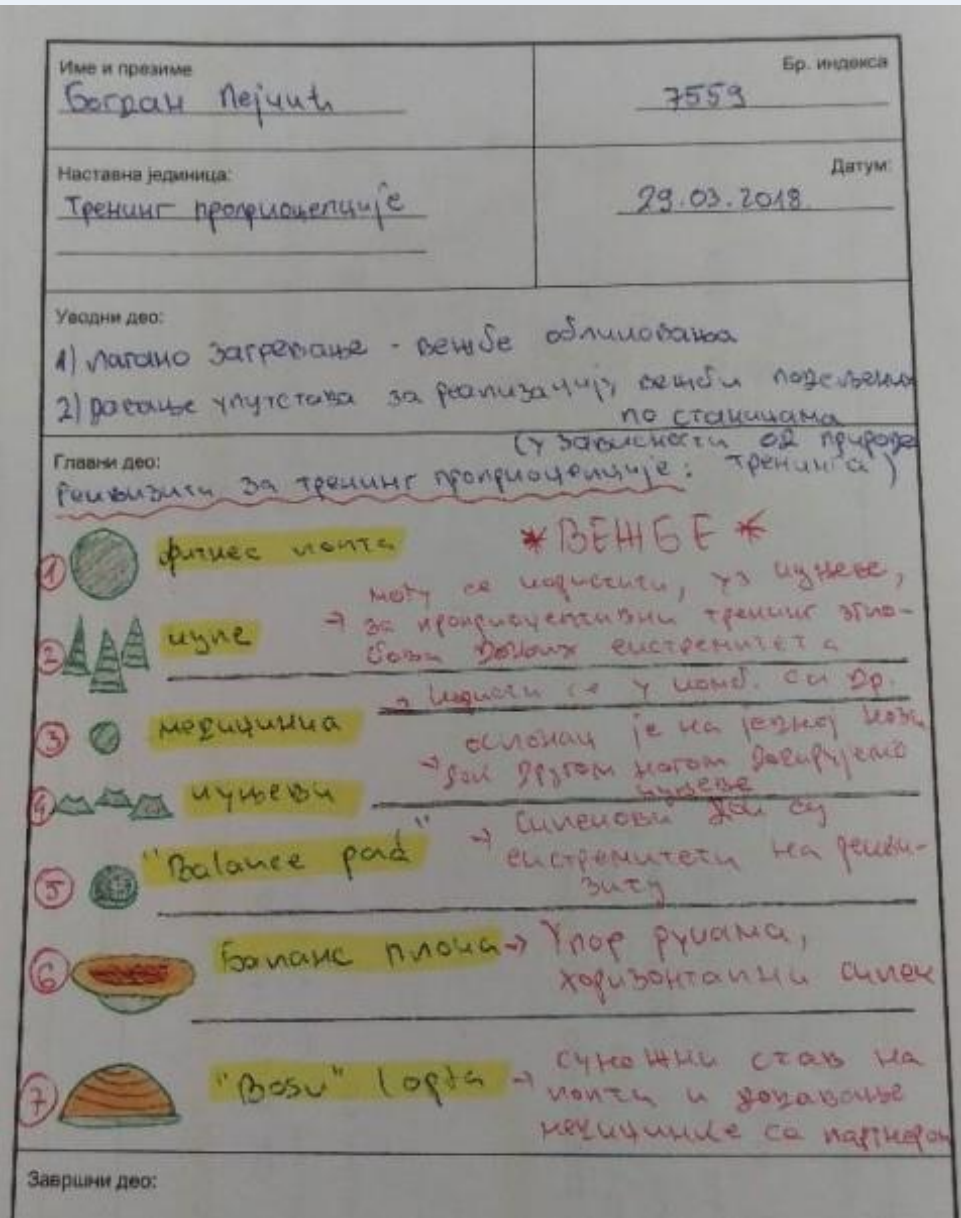 Име и презиме
Богдан Пејчић
Бр. индекса
7559
Наставна јединица:
Тренинг проприоцепције
Датум:
29.03.2018.
Уводни део:
1) лагано загревање - вежбе обликовања
2) давање упутстава за реализацију вежби подељених
по станицама
(у зависности од природе
тренинга)
Главни део:
Реквизити за тренинг проприоцепције:
*ВЕЖБЕ*
1 фитнес лопта
2 чуње
могу се користити, уз чуњеве,
→ за проприоцептивни тренинг зглобова доњих екстремитета
3 медицинка
→ користи се у комб. са др.
4 чуњеви
ослонац је на једној нози
→ док другом ногом додирујемо
чуњеве
5 "Balance pad"
→ склекови док су
екстремитети на рекви-
зиту
6 Баланс плоча → Упор рукама,
хоризонтални склек
7 "Bosu" lopta → суножни став на
лопти и додавање
медицинке са партнером
Завршни део: